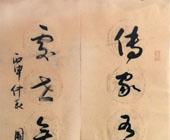 傳家有
處世無
丙申仲秋